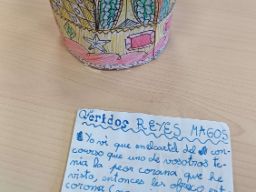 Qeridos REYES MAGOS
Yo vi que en el cartel del con-
curso que uno de vosotros te-
nia la peor corona que he
visto, entonces les ofrezco est
corona